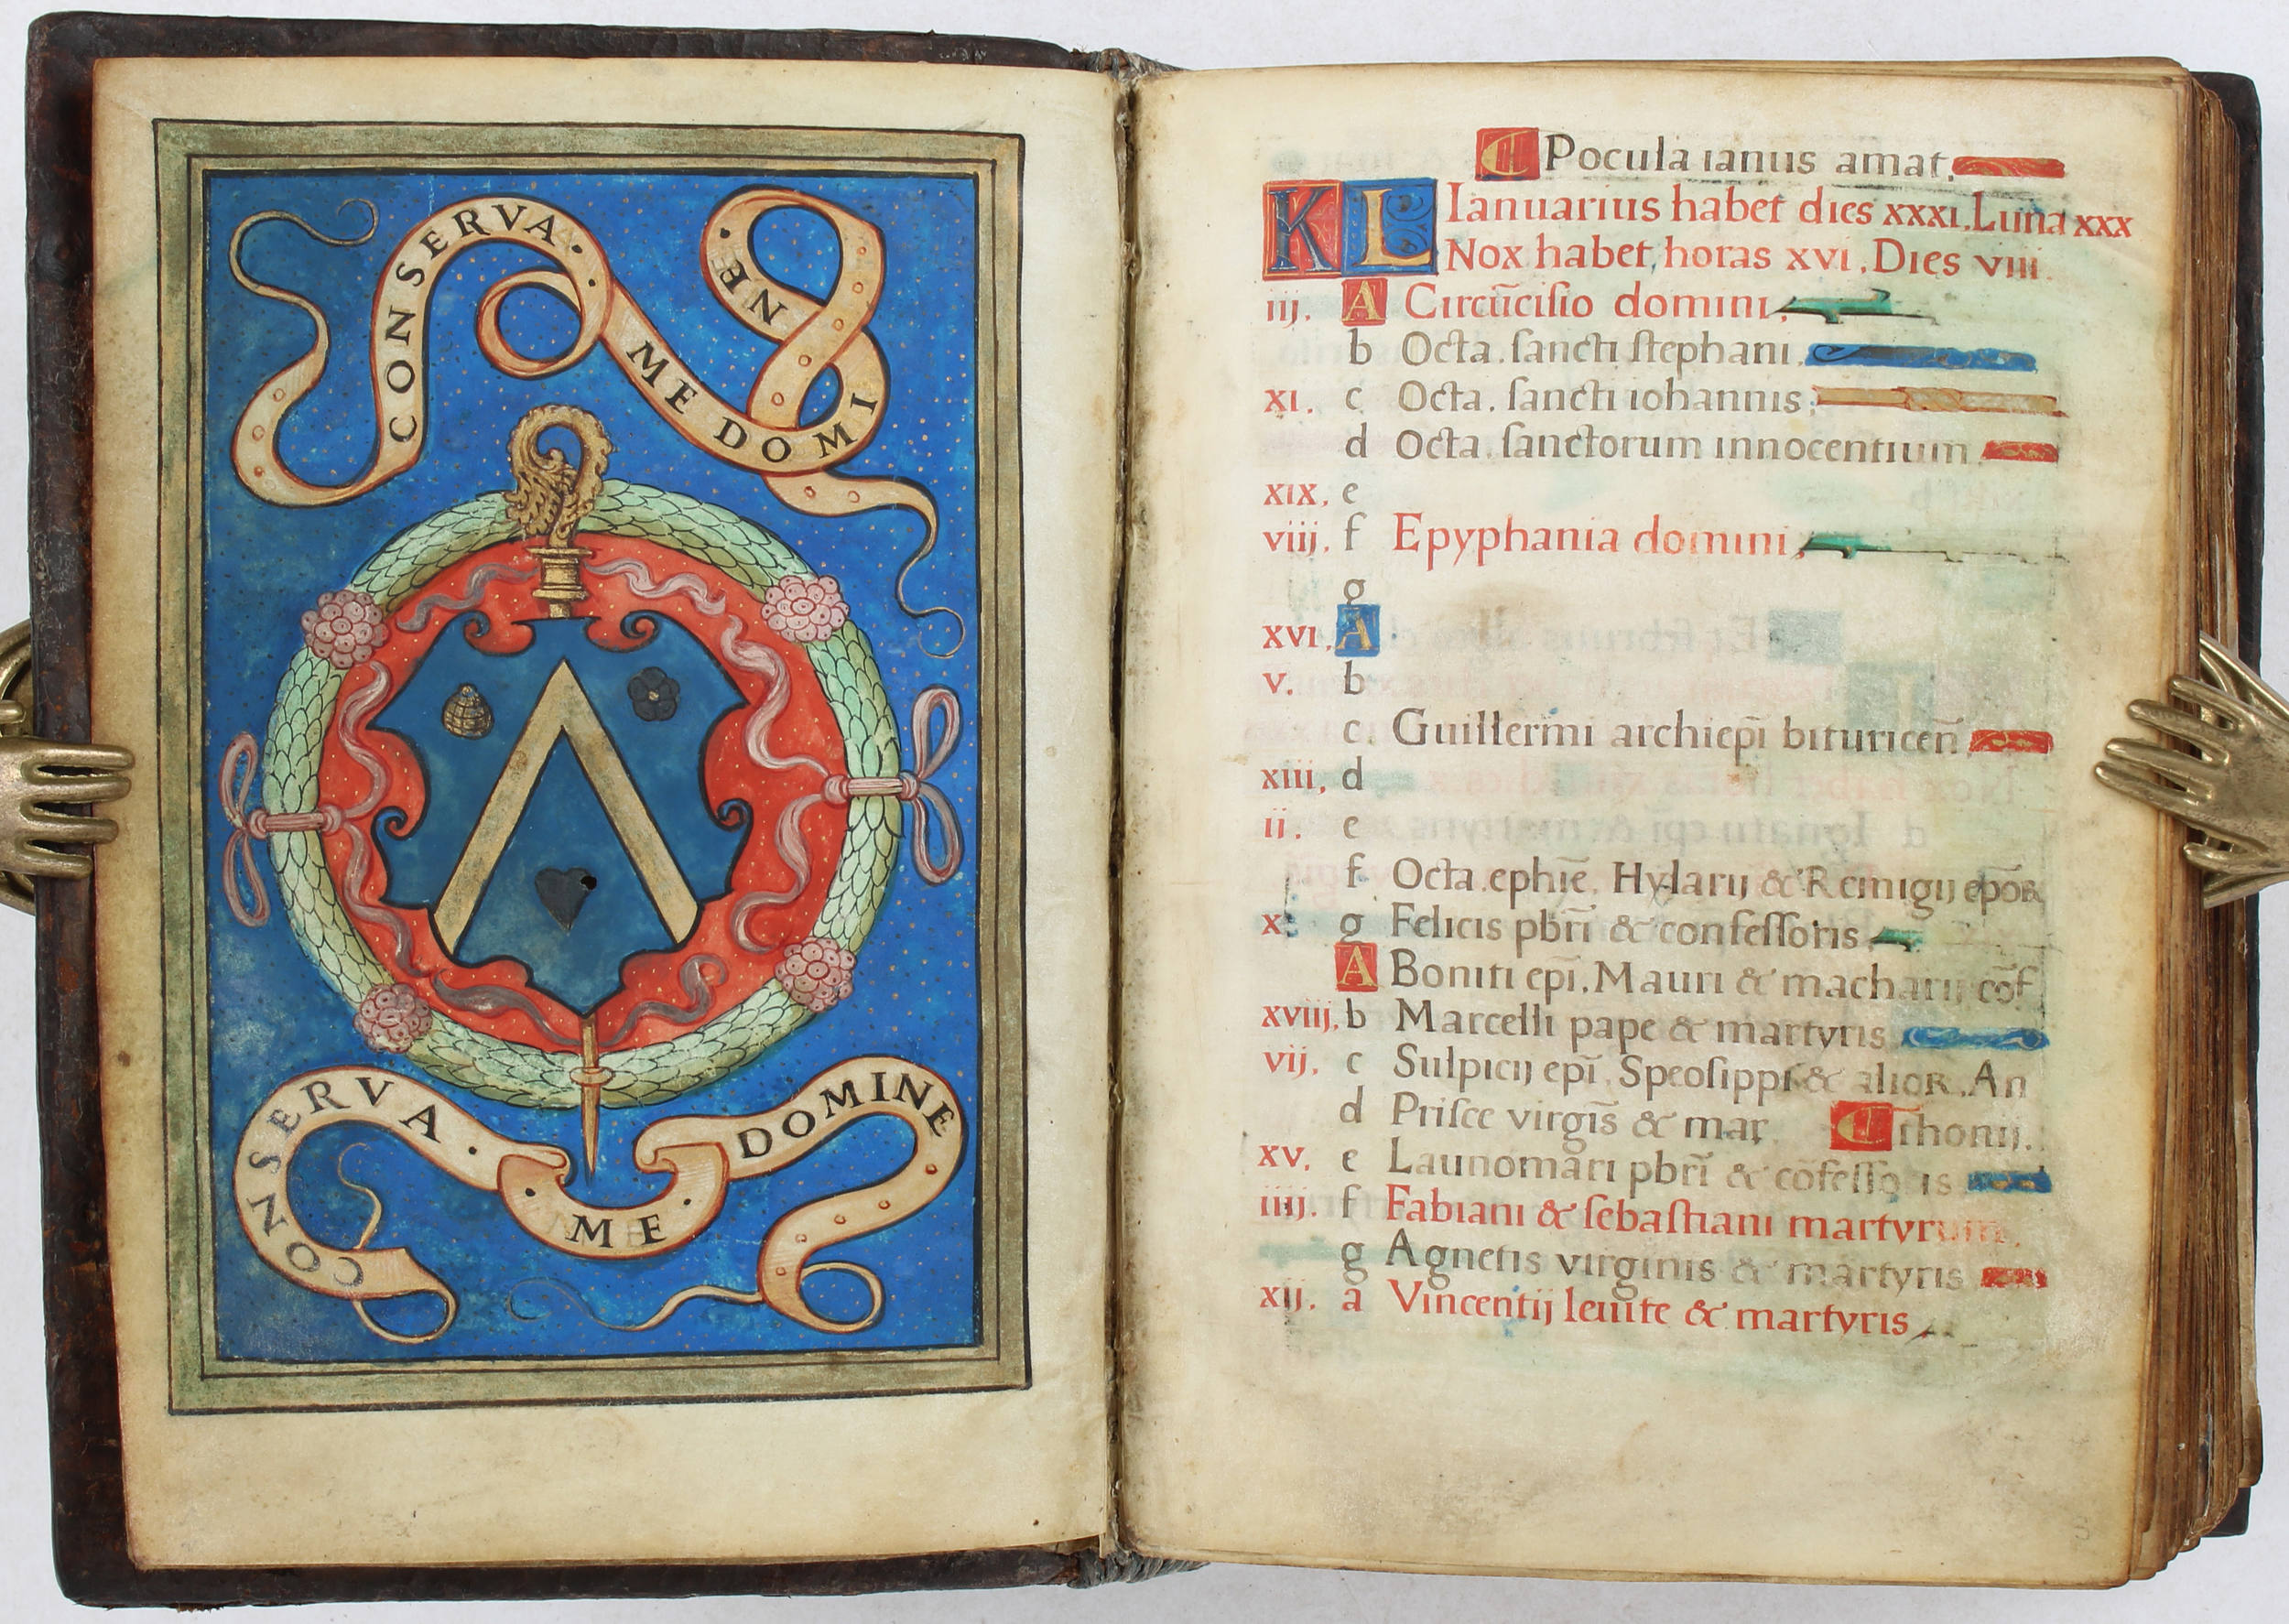 CONSERVA · · ME DOMI NE ·
CONSERVA · · ME · DOMINE
Pocula ianus amat.
KL Ianuarius habet dies xxxi. Luna xxx
Nox habet horas xvi. Dies viii.
iij. A Circūcisio domini.
b Octa. sancti stephani.
xi. c Octa. sancti iohannis.
d Octa. sanctorum innocentium.
xix. e
viij. f Epyphania domini.
g
xvi. A
v. b
c. Guillermi archiepī bituriceñ
xiii. d
ii. e
f Octa. ephīe. Hylarij & Remigij epōꝝ
x. g Felicis pbrī & confessoris
A Boniti epī. Mauri & macharij cōf
xviij. b Marcelli pape & martyris
vij. c Sulpicij epī. Speosippi & alioꝝ. An
d Prisce virgīs & mar. thonij.
xv. e Launomari pbrī & cōfessoris
iiij. f Fabiani & sebastiani martyrum.
g Agnetis virginis & martyris
xij. a Vincentij leuite & martyris